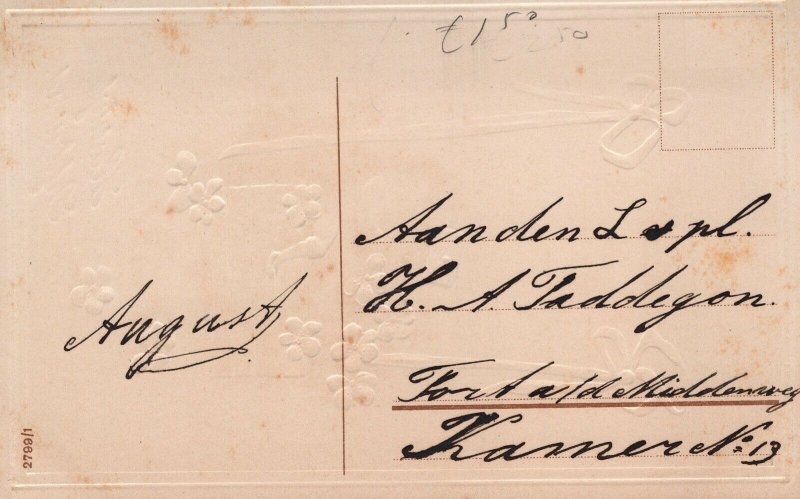 €1 50
50
Aan den L s pl.
H. A. Taddegon.
August
Fort a/d Middenweg
Kamer No. 13
2799/1